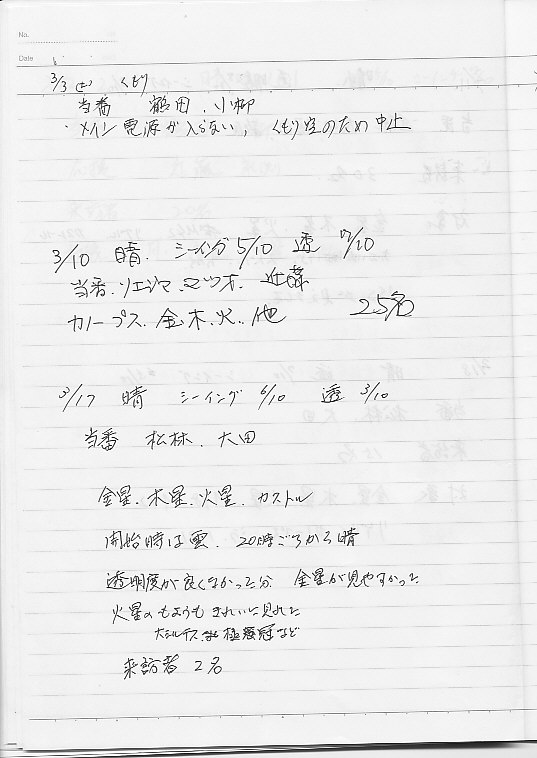 No.
Date
3/3 (土) くもり
当番 鶴田、小柳
・メイン電源が入らない, くもり空のため中止
3/10 晴. シーイング 5/10 透 7/10
当番. ソエジマ. マツオ. 近藤
カノープス. 金.木.火..他 25名
3/17 晴 シーイング 6/10 透 3/10
当番 松林. 大田
金星.木星.火星.カストル
開始時は雲. 20時ごろから晴
透明度が良くなかった分 金星が見やすかった
火星のもようもきれいに見れた
大シルチス 極冠など
来訪者 2名